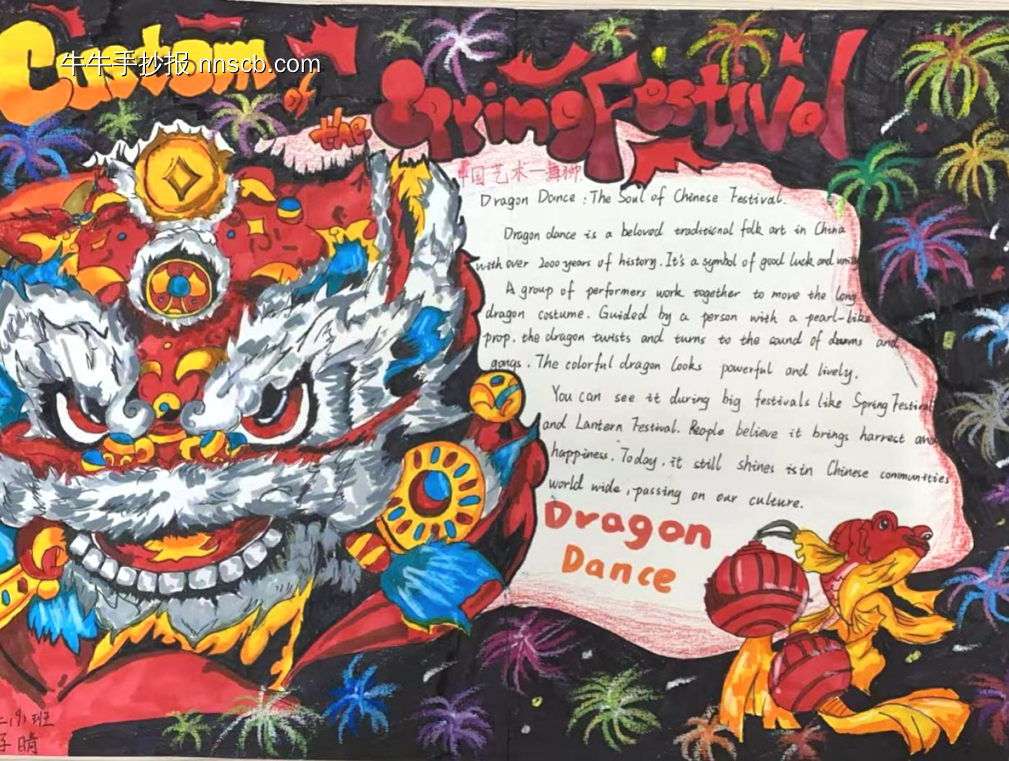 Custom
牛牛手抄报 nnscb.com
of
the
Spring Festival
中国艺术—舞狮
Dragon Dance : The Soul of Chinese Festival.
Dragon dance is a beloved traditional folk art in China
with over 2000 years of history. It's a symbol of good luck and unity
A group of performers work together to move the long
dragon costume. Guided by a person with a pearl-like
prop, the dragon twists and turns to the sound of drums and
gongs. The colorful dragon looks powerful and lively.
You can see it during big festivals like Spring Festival
and Lantern Festival. People believe it brings harrest and
happiness. Today, it still shines isin Chinese communities
world wide, passing on our culture.
Dragon
Dance
班
晴